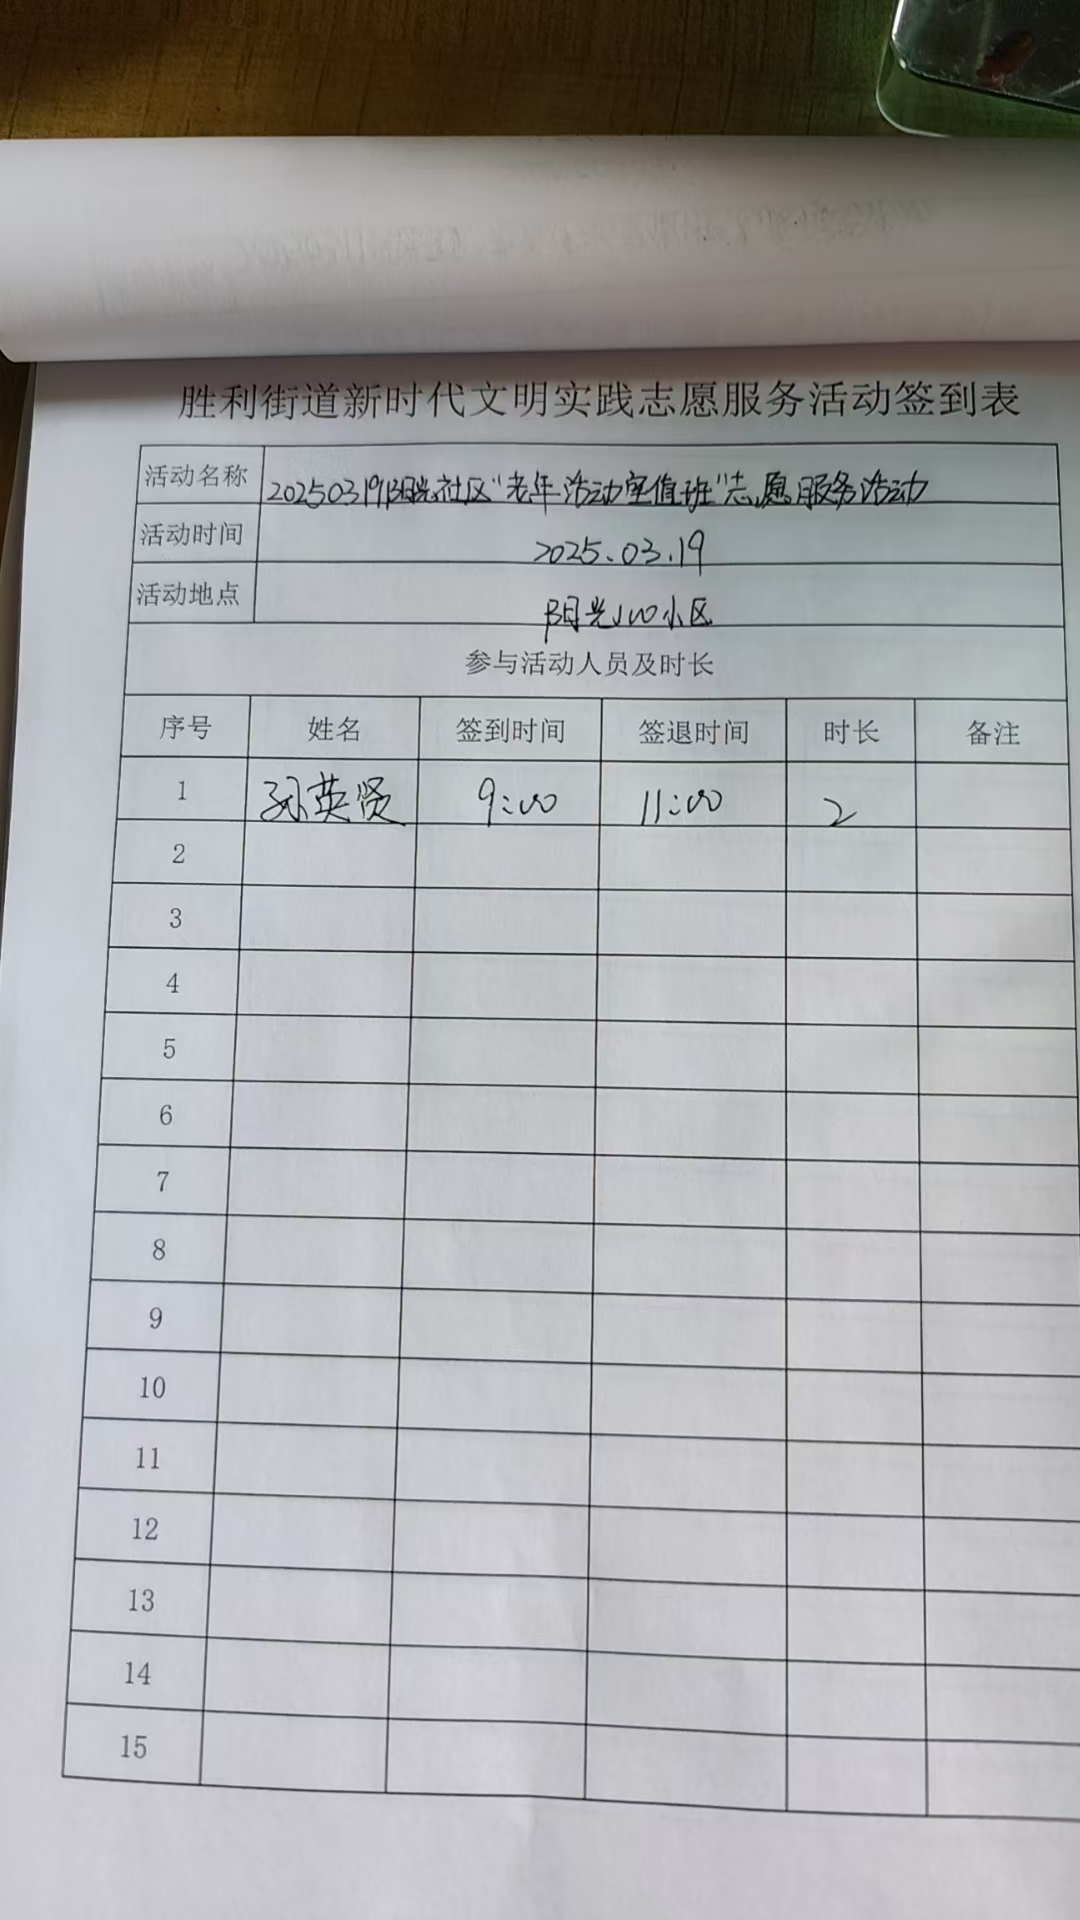 胜利街道新时代文明实践志愿服务活动签到表
活动名称 20250319阳光社区“老年活动室值班”志愿服务活动
活动时间 2025.03.19
活动地点 阳光100小区
参与活动人员及时长
序号 姓名 签到时间 签退时间 时长 备注
1 孙英贤 9:00 11:00 2
2
3
4
5
6
7
8
9
10
11
12
13
14
15